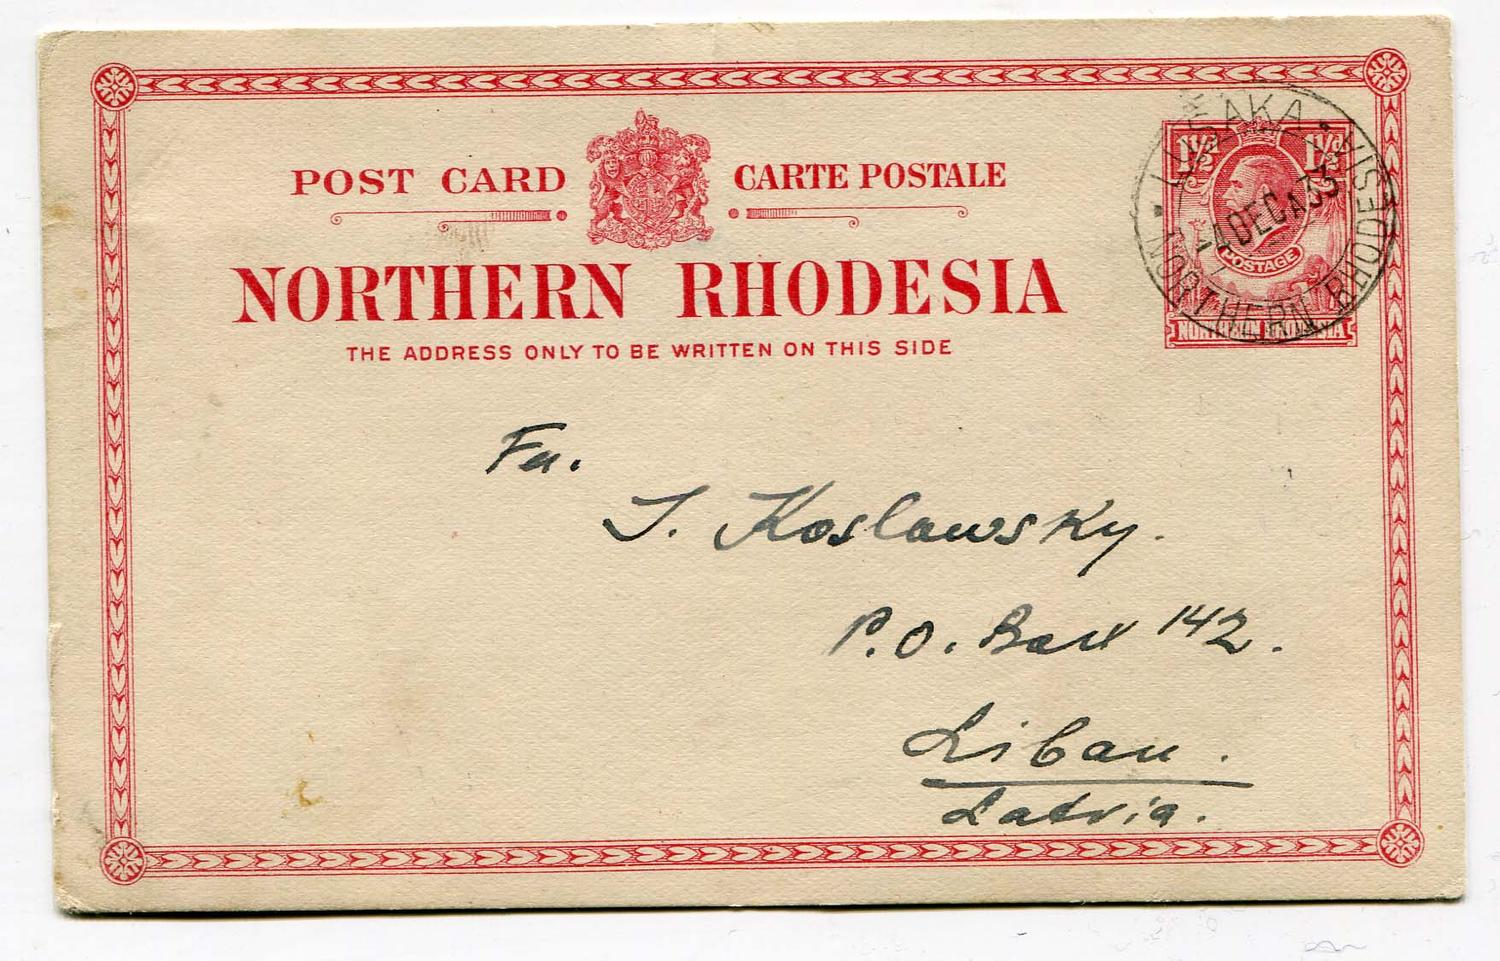 POST CARD CARTE POSTALE
NORTHERN RHODESIA
THE ADDRESS ONLY TO BE WRITTEN ON THIS SIDE
1½ 1½d
POSTAGE
NORTHERN RHODESIA
LUSAKA
DEC A 35
NORTHERN RHODESIA
Fa.
J. Koslawsky.
P.O. Box 142.
Libau.
Latvia.